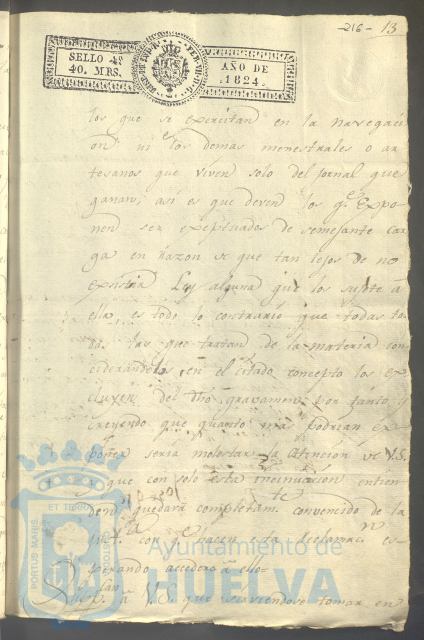 216 - 13
SELLO 4º
40. MRS.
AÑO DE
1824.
los que se exercitan en la navegaci
on ni los demas menestrales o ar
tesanos que viven solo del jornal que
ganan; asi es que deven los qe. Expo
nen ser exeptuados de semejante car
ga en razon a que tan lejos de no
existir Ley alguna que los sujete á
ella, es todo lo contrario, que todas to
das las que tratan de la materia con
ciderandolos en el citado concepto los ex
cluyen del dho gravamen: por tanto y
creyendo que quanto mas podrian ex
poner seria molestar la atencion de V.S.
y que con solo esta incinuacion entien
den quedará completamte. convencido de la
justa. con qe. hacen esta reclamacn es
perando accederá á ello=
Suplican á V.S. que sirviendose tomar en
ET TERRÆ
PORTUS MARIS
CUSTODIA
Ayuntamiento de
HUELVA